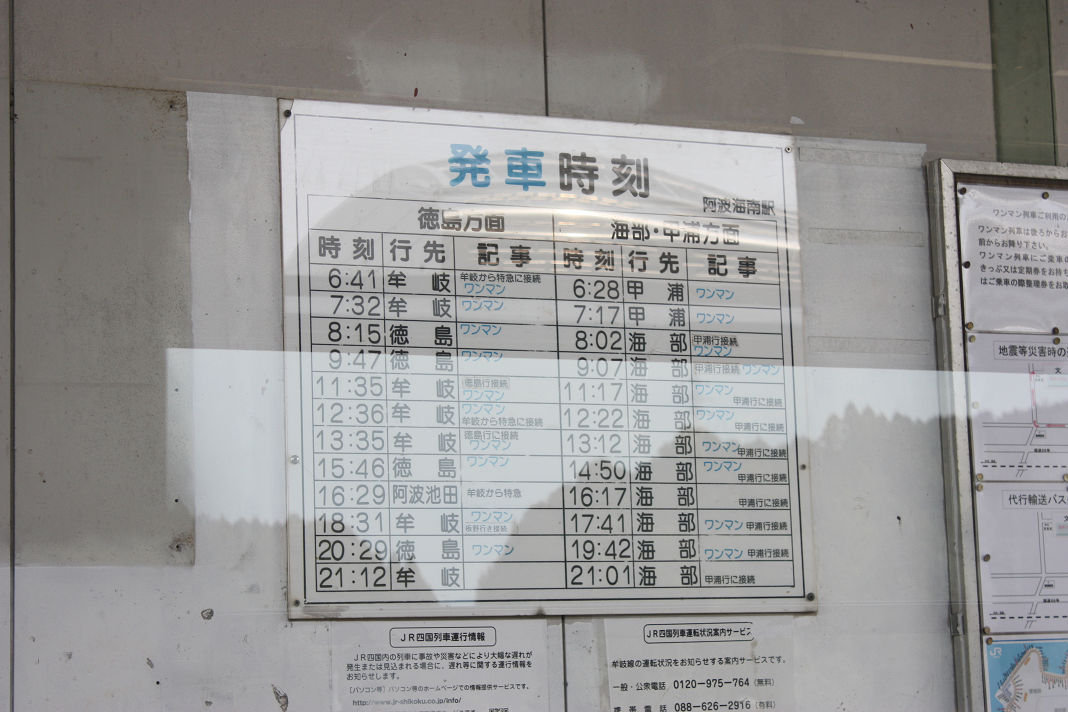 発車時刻
阿波海南駅
徳島方面 海部・甲浦方面
時刻 行先 記事 時刻 行先 記事
6:41 牟岐 牟岐から特急に接続 ワンマン 6:28 甲浦 ワンマン
7:32 牟岐 ワンマン 7:17 甲浦 ワンマン
8:15 徳島 ワンマン 8:02 海部 甲浦行接続 ワンマン
9:47 徳島 ワンマン 9:07 海部 甲浦行接続 ワンマン
11:35 牟岐 徳島行接続 ワンマン 11:17 海部 ワンマン 甲浦行に接続
12:36 牟岐 ワンマン 牟岐から特急に接続 12:22 海部 ワンマン 甲浦行に接続
13:35 牟岐 徳島行に接続 ワンマン 13:12 海部 ワンマン 甲浦行に接続
15:46 徳島 ワンマン 14:50 海部 ワンマン 甲浦行に接続
16:29 阿波池田 牟岐から特急 16:17 海部 甲浦行に接続
18:31 牟岐 ワンマン 板野行き接続 17:41 海部 ワンマン 甲浦行接続
20:29 徳島 ワンマン 19:42 海部 ワンマン 甲浦行接続
21:12 牟岐 21:01 海部 甲浦行に接続
JR四国列車運行情報
JR四国内の列車に事故や災害などにより大幅な遅れが
発生または見込まれる場合に、遅れ等に関する運行情報を
お知らせします。
[パソコン等] パソコン等のホームページでの情報提供サービスです。
http://www.jr-shikoku.co.jp/info/
JR四国列車運転状況案内サービス
牟岐線の運転状況をお知らせする案内サービスです。
一般・公衆電話 0120-975-764 (無料)
携帯電話 088-626-2916 (有料)
ワンマン列車ご利用の
ワンマン列車は後ろからお
前からお降り下さい。
ワンマン列車にご乗車の
きっぷ又は定期券をお持ち
はご乗車の際整理券をお取
地震等災害時の
代行輸送バス
JR